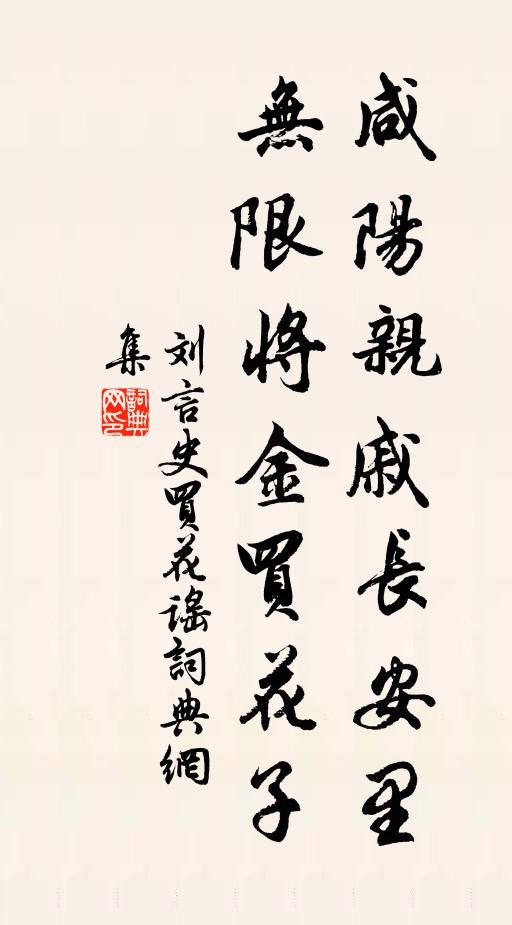 咸陽親戚長安里
無限將金買花子
刘言史買花謡詞典網
集
詞典
网印